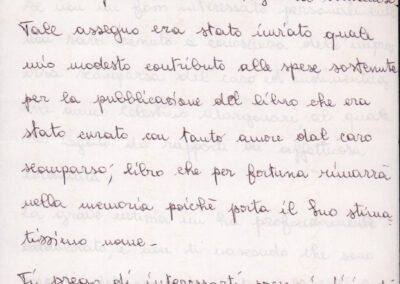 Tale assegno era stato inviato quale
mio modesto contributo alle spese sostenute
per la pubblicazione del libro che era
stato curato con tanto amore dal caro
scomparso; libro che per fortuna rimarrà
nella memoria poichè porta il Suo stima-
tissimo nome.-
Ti prego di interessarti